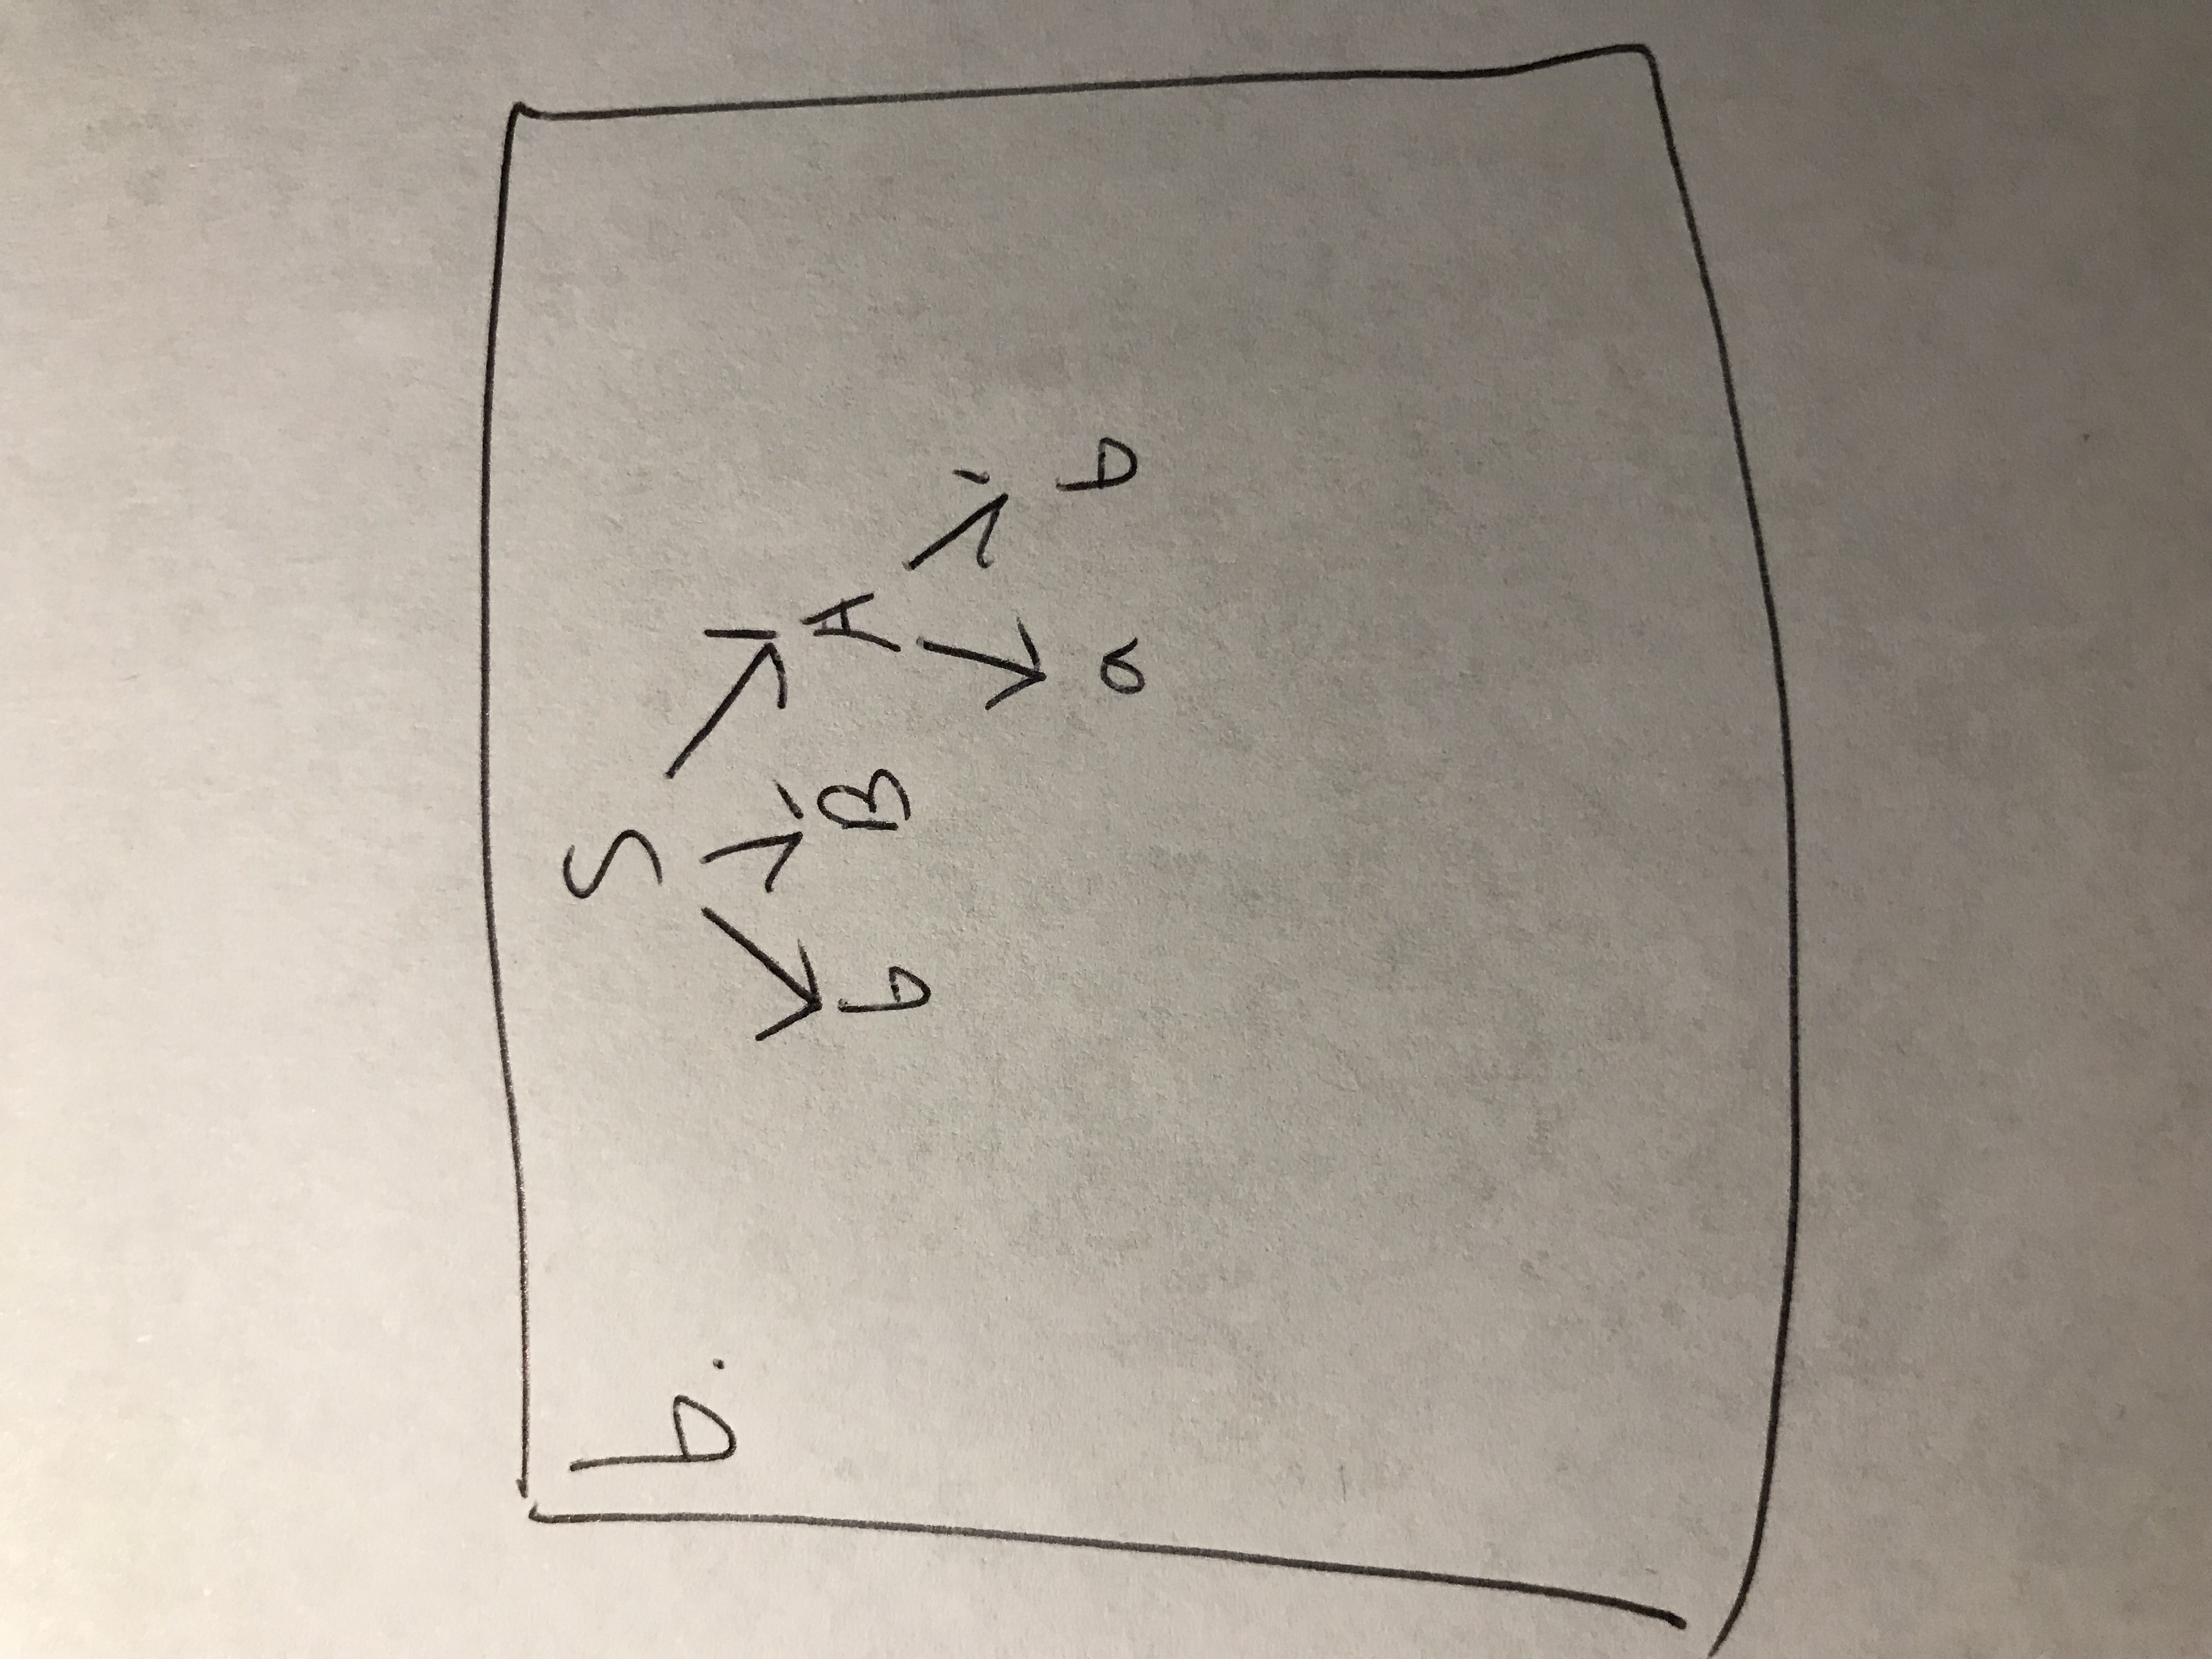 b.
S
b B A
a b